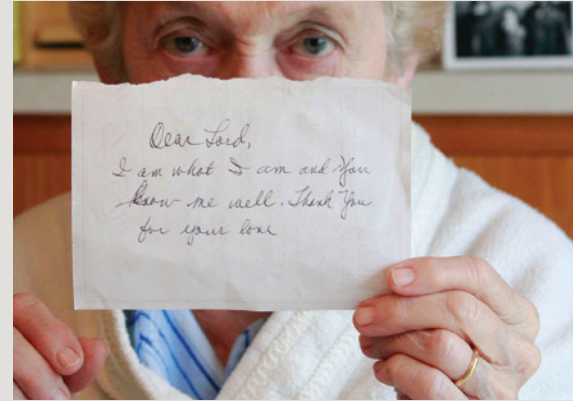 Dear Lord,
I am what I am and You
know me well. Thank You
for your love